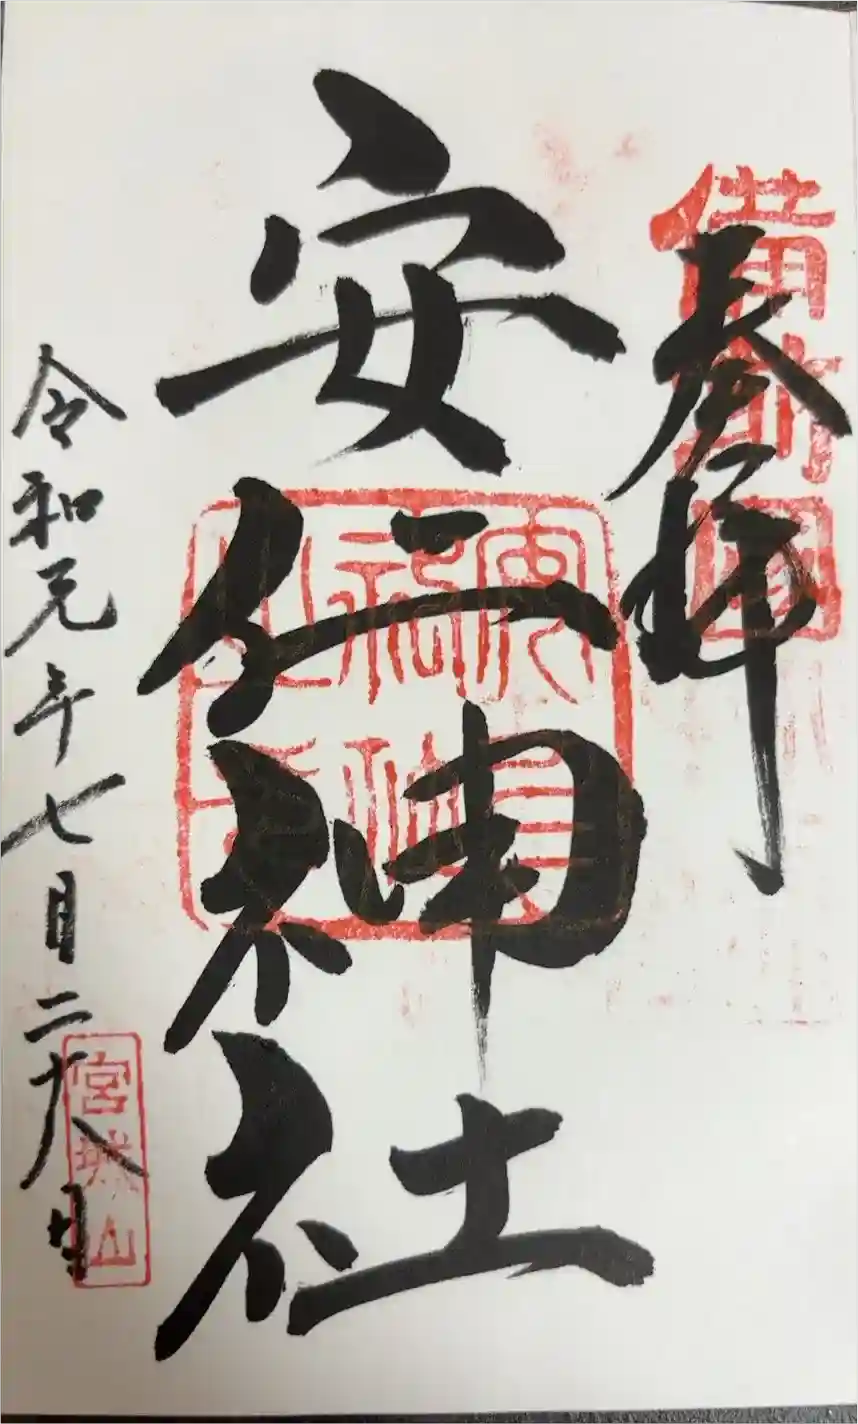 奉拝
備前国
安仁神社
令和元年七月二十八日
宮城山